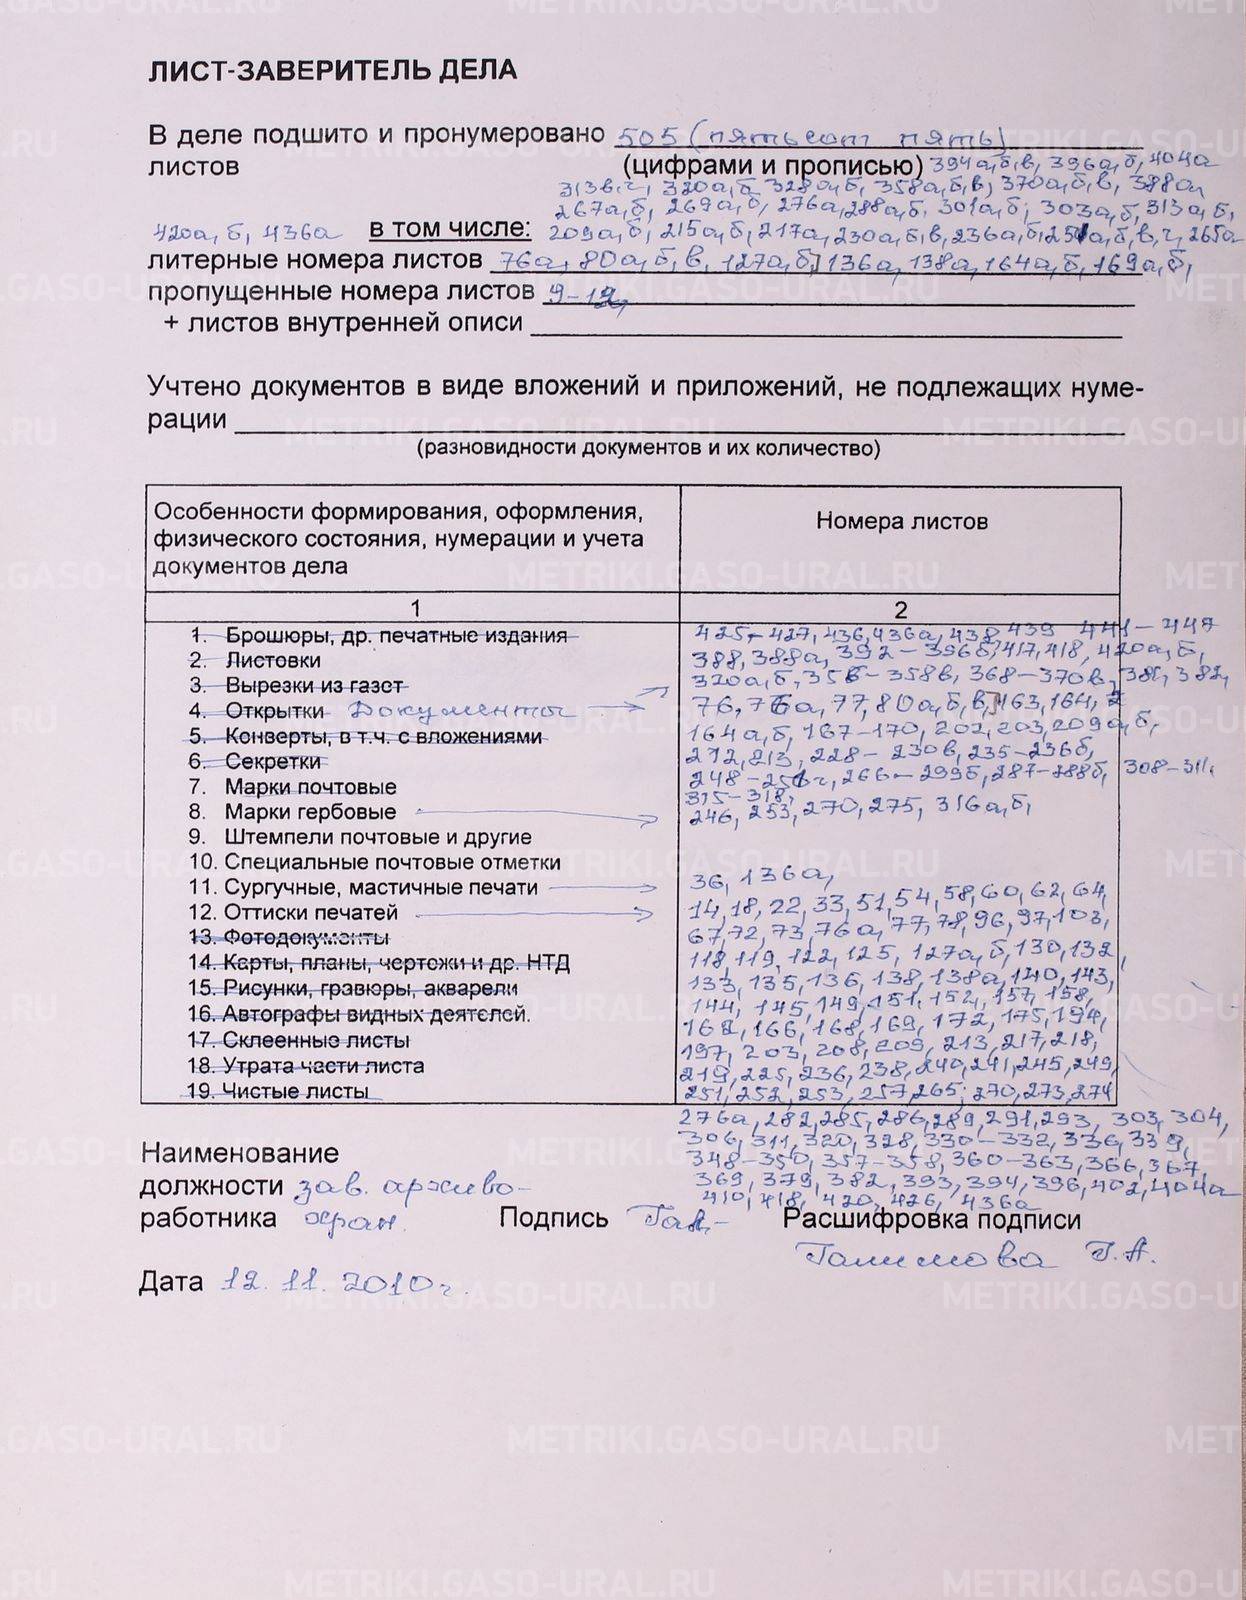 ЛИСТ-ЗАВЕРИТЕЛЬ ДЕЛА
В деле подшито и пронумеровано 505 (пятьсот пять)
листов (цифрами и прописью) 394а,б,в, 396а,б, 404а
313в,г, 320а,б 328а,б, 358а,б,в, 370а,б,в, 388а,
267а,б, 269а,б, 276а, 288а,б, 301а,б, 303а,б, 313а,б,
420а,б, 436а в том числе: 209а,б, 215а,б, 217а, 230а,б,в, 236а,б, 251а,б,в,г, 265а
литерные номера листов 76а, 80а,б,в, 127а,б, 136а, 138а, 164а,б, 169а,б,
пропущенные номера листов 9-12,
+ листов внутренней описи
Учтено документов в виде вложений и приложений, не подлежащих нуме-
рации
(разновидности документов и их количество)
Особенности формирования, оформления,
физического состояния, нумерации и учета
документов дела
Номера листов
1 2
1. Брошюры, др. печатные издания
2. Листовки
3. Вырезки из газет
4. Открытки Документы
5. Конверты, в т.ч. с вложениями
6. Секретки
7. Марки почтовые
8. Марки гербовые
9. Штемпели почтовые и другие
10. Специальные почтовые отметки
11. Сургучные, мастичные печати
12. Оттиски печатей
13. Фотодокументы
14. Карты, планы, чертежи и др. НТД
15. Рисунки, гравюры, акварели
16. Автографы видных деятелей.
17. Склеенные листы
18. Утрата части листа
19. Чистые листы
425-427, 436, 436а, 438, 439 441-447
388, 388а, 392-396б, 417, 418, 420а,б,
320а,б, 356-358в, 368-370в, 381, 382,
76, 76а, 77, 80а,б,в, 163, 164,
164а,б, 167-170, 202, 203, 209а,б,
212, 213, 228-230в, 235-236б,
248-251г, 266-299б, 287-288б, 308-311,
315-318,
246, 253, 270, 275, 316а,б,
36, 136а,
14, 18, 22, 33, 51, 54, 58, 60, 62, 64,
67, 72, 73, 76а, 77, 78, 96, 97, 103,
118, 119, 122, 125, 127а,б, 130, 132,
133, 135, 136, 138, 138а, 140, 143,
144, 145, 149, 151, 152, 157, 158,
162, 166, 168, 169, 172, 175, 194,
197, 203, 208, 209, 213, 217, 218,
219, 225, 236, 238, 240, 241, 245, 249,
251, 252, 253, 257, 265, 270, 273, 274
276а, 282, 285, 286, 289, 291, 293, 303, 304,
306, 311, 320, 328, 330-332, 336, 339,
348-350, 357-358, 360-363, 366, 367,
369, 379, 382, 393, 394, 396, 402, 404а
410, 418, 420, 426, 436а
Наименование
должности зав. архиво-
работника хран. Подпись Гал- Расшифровка подписи
Галимова Г.А.
Дата 12.11.2010г.
METRIKI.GASO-URAL.RU